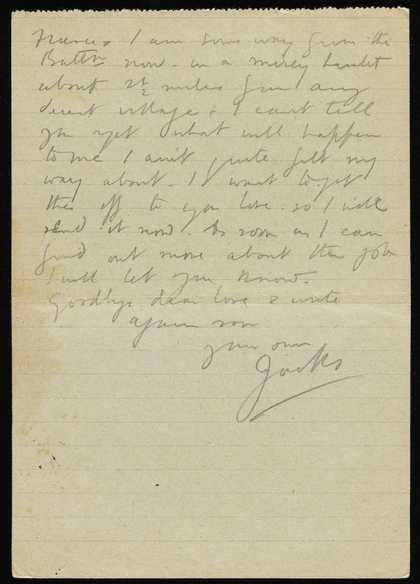 Frances I am some way from the
Battn now - in a mercy hamlet
about 2½ miles from any
decent village & I can't tell
you yet what will happen
to me I aint quite felt my
way about - I want to get
this off to you love so I will
send it now. As soon as I can
find out more about the job
I will let you know.
Goodbye dear love & write
again soon
your own
Jacks